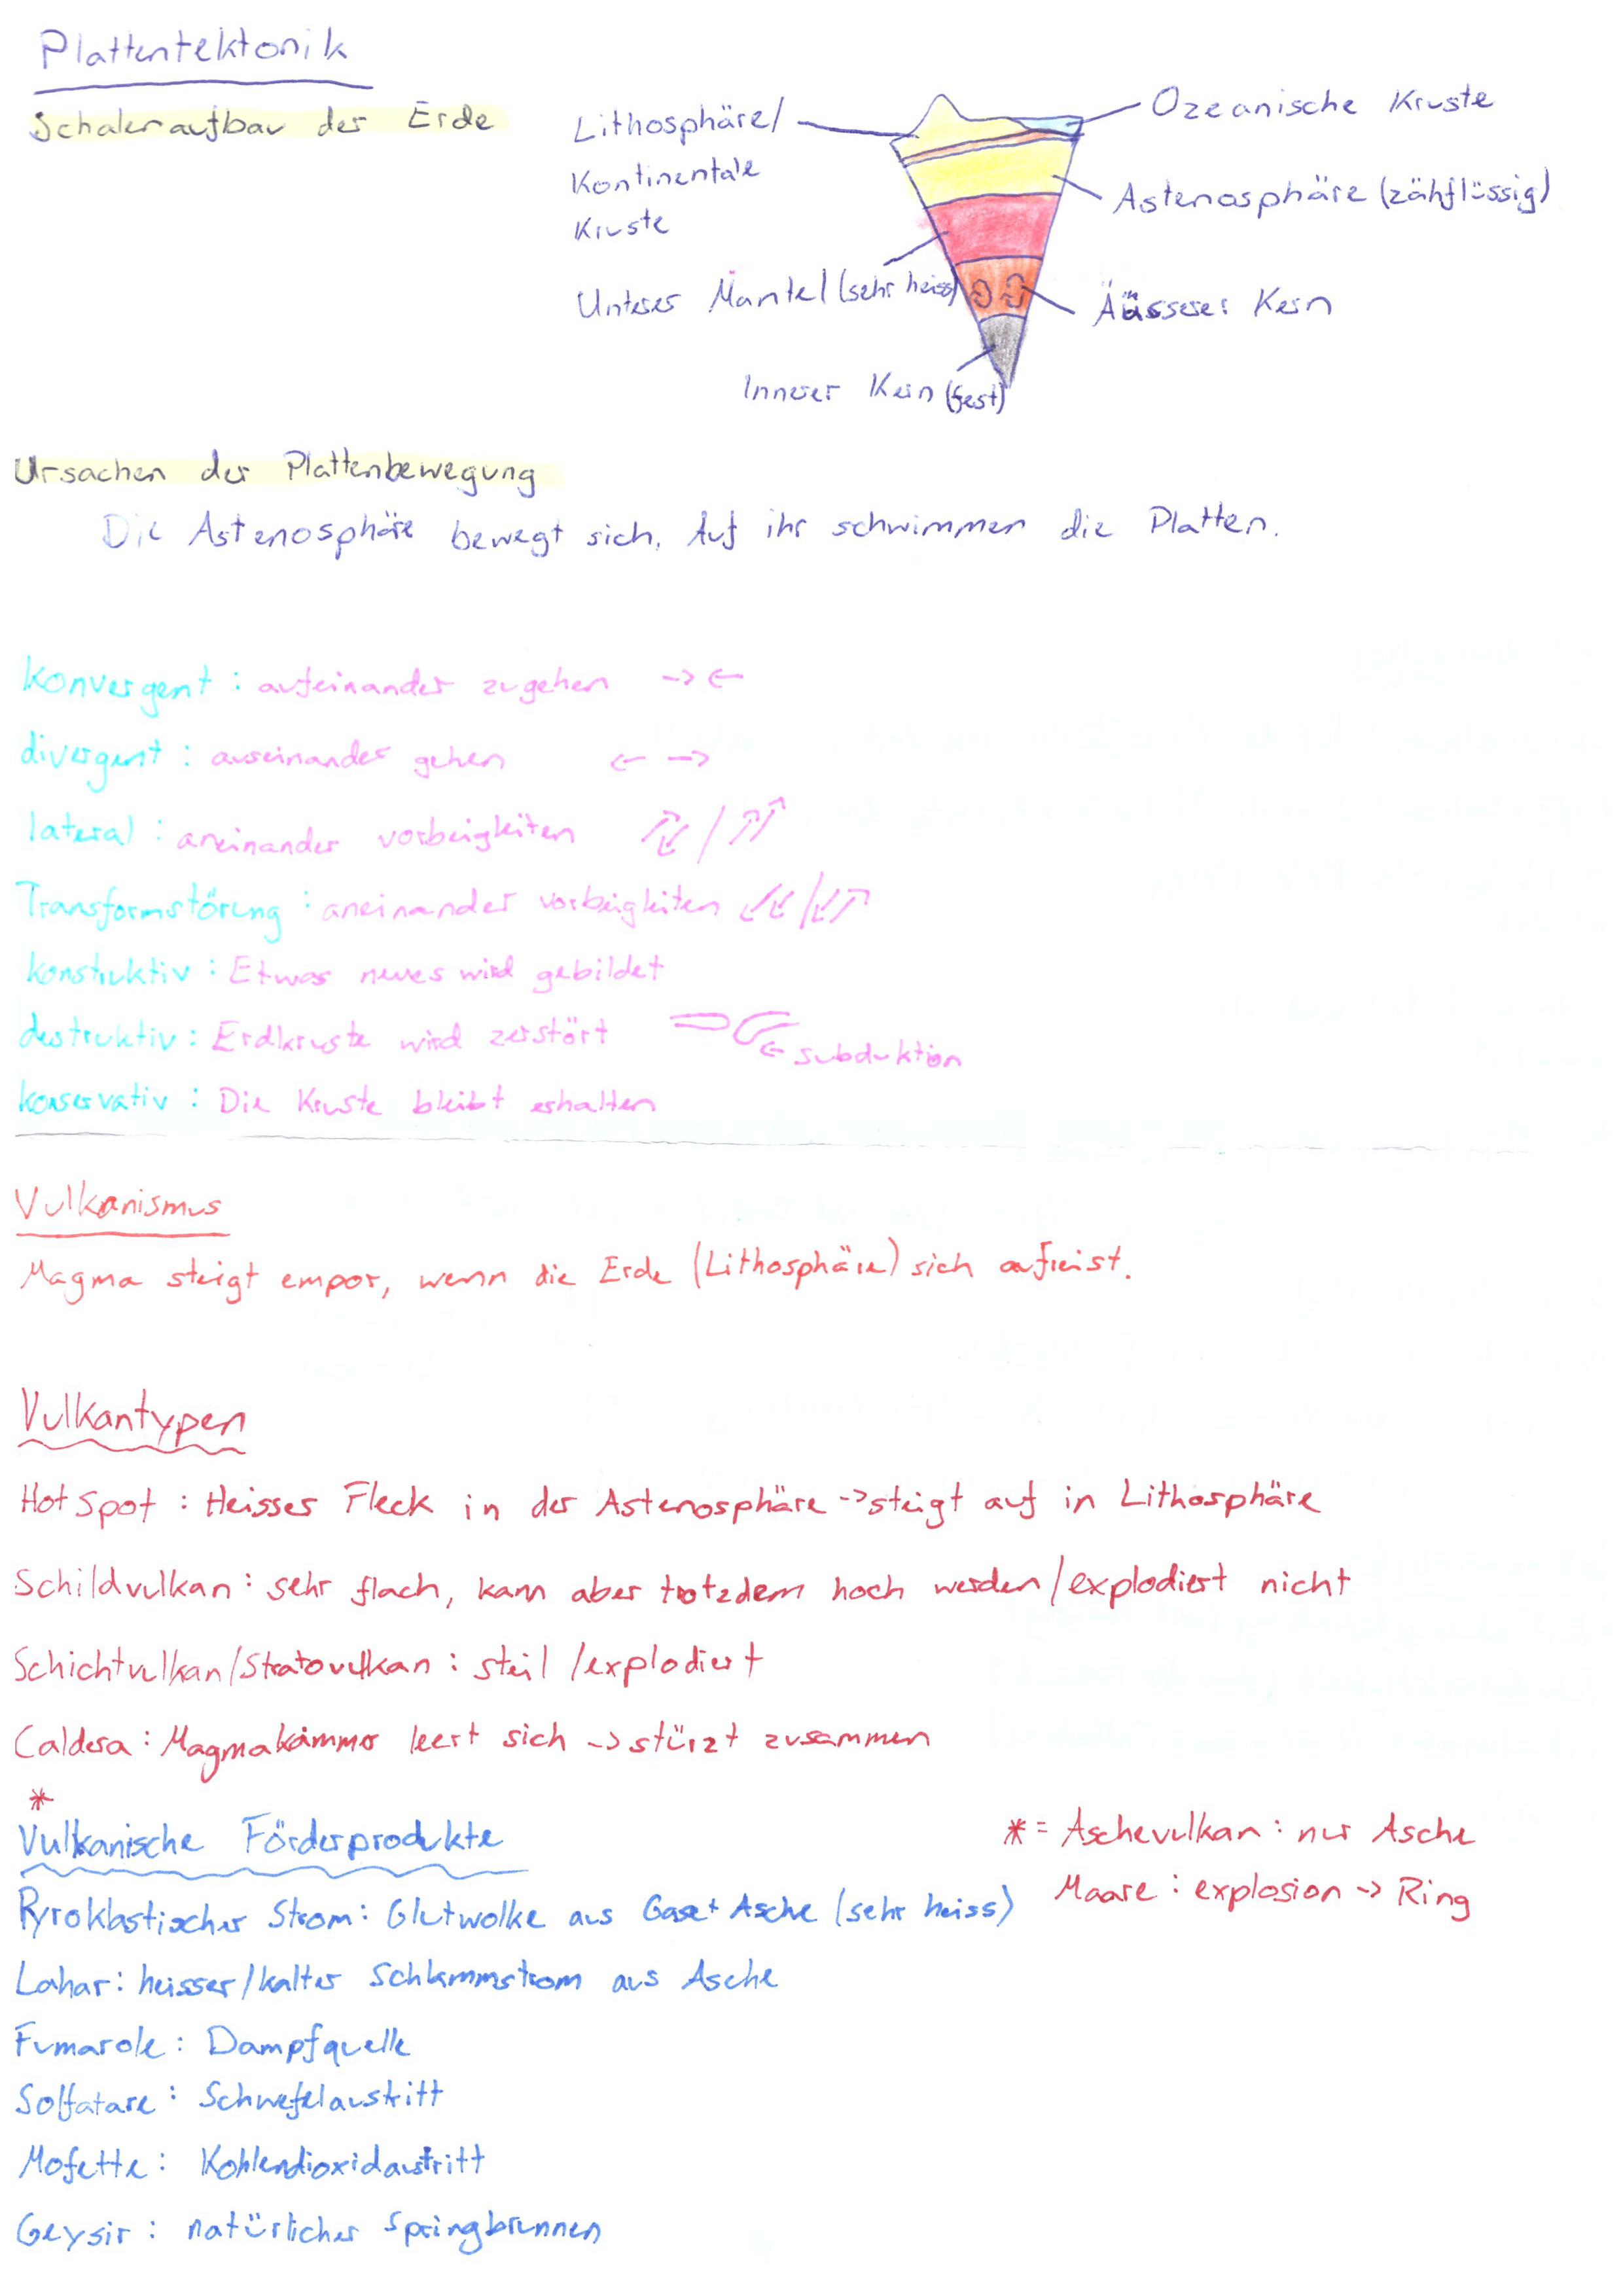 Plattentektonik
Schalenaufbau der Erde
Lithosphäre/
Kontinentale
Kruste
Ozeanische Kruste
Astenosphäre (zähflüssig)
Unterer Mantel (sehr heiss)
Äusserer Kern
Innerer Kern (fest)
Ursachen der Plattenbewegung
Die Astenosphäre bewegt sich. Auf ihr schwimmen die Platten.
Konvergent : aufeinander zugehen → ←
divergent : auseinander gehen ← →
lateral : aneinander vorbeigleiten ↗↙ / ↗↗
Transformstörung : aneinander vorbeigleiten ↙↙ / ↙↗
konstruktiv : Etwas neues wird gebildet
destruktiv : Erdkruste wird zerstört ← subduktion
konservativ : Die Kruste bleibt erhalten
Vulkanismus
Magma steigt empor, wenn die Erde (Lithosphäre) sich aufreist.
Vulkantypen
Hot Spot : Heisser Fleck in der Astenosphäre -> steigt auf in Lithosphäre
Schildvulkan : sehr flach, kann aber trotzdem hoch werden / explodiert nicht
Schichtvulkan/Stratovulkan : steil / explodiert
Caldera : Magmakammer leert sich -> stürzt zusammen
*
Vulkanische Förderprodukte
* = Aschevulkan : nur Asche
Maare : explosion -> Ring
Pyroklastischer Strom : Glutwolke aus Gase + Asche (sehr heiss)
Lahar : heisser/kalter Schlammstrom aus Asche
Fumarole : Dampfquelle
Solfatare : Schwefelaustritt
Mofette : Kohlendioxidaustritt
Geysir : natürlicher Springbrunnen